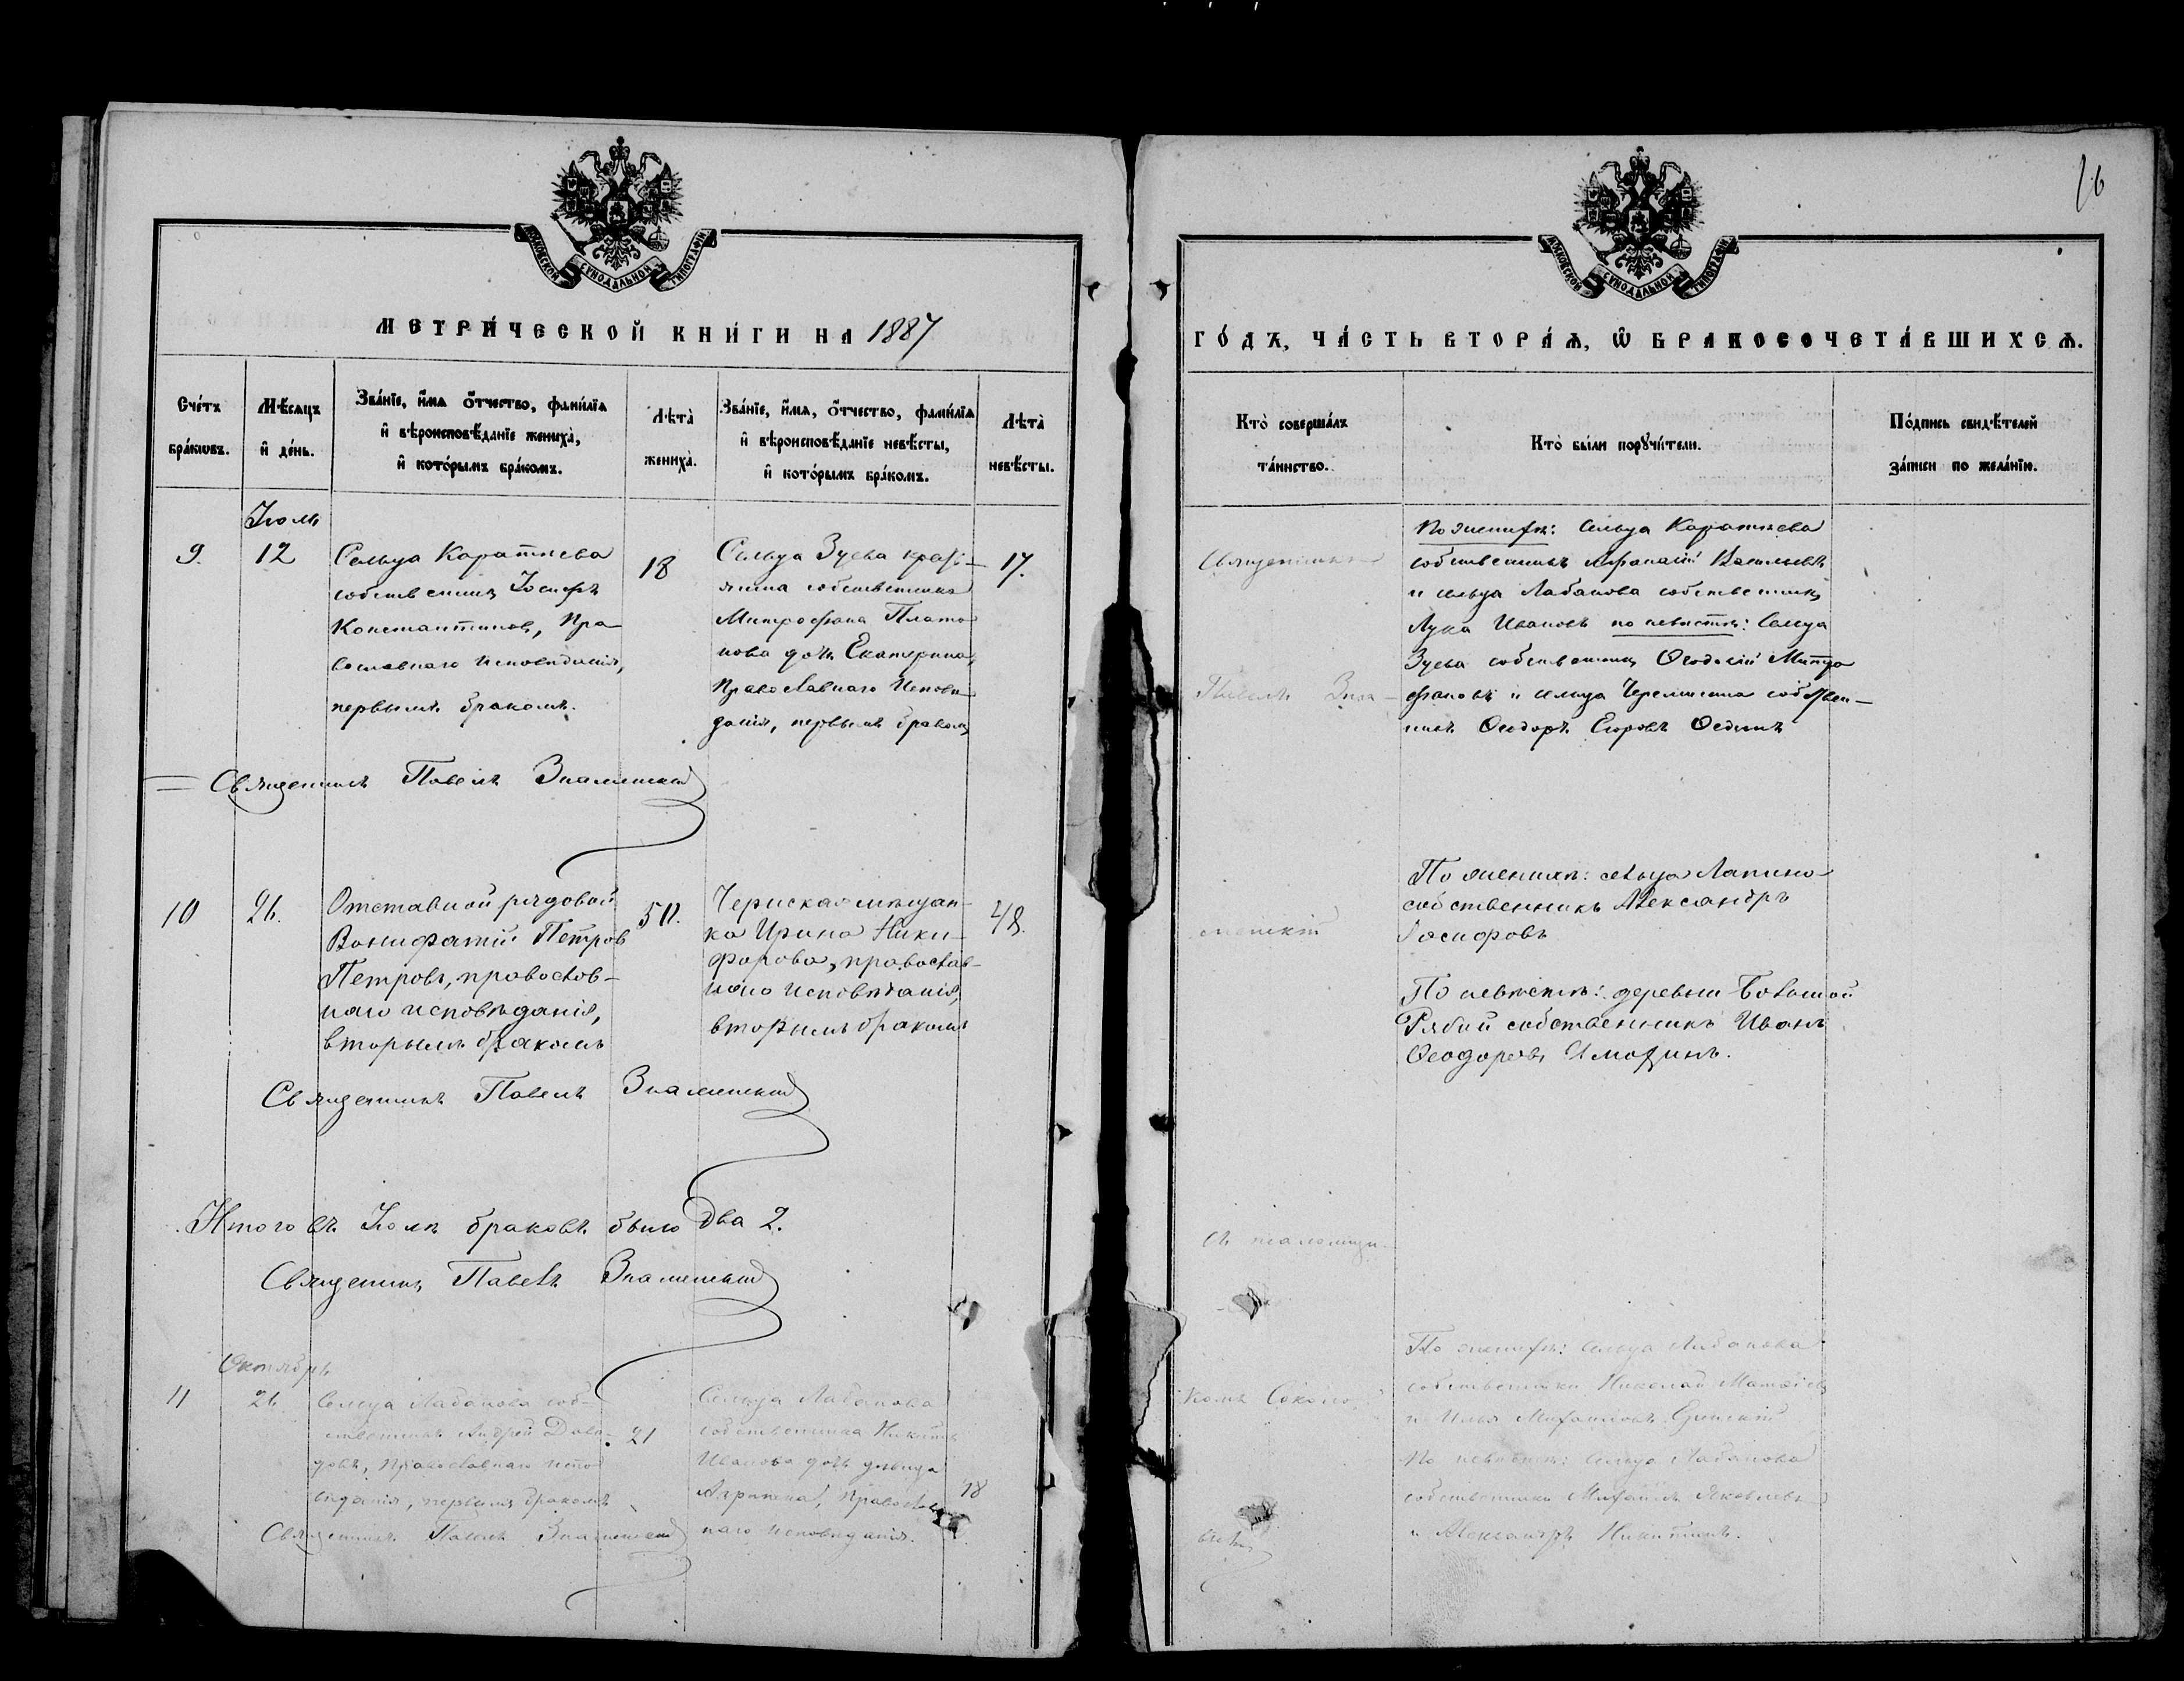 МОСКОВСКОЙ СѴНОДАЛЬНОЙ ТИПОГРАФІИ
МЕТРИ́ЧЕСКОЙ КНИ́ГИ НА 1887
Сче́тъ бра́ковъ.
Мѣ́сяцъ и҆ де́нь.
Зва́нїе, и҆́мя, ѻ҆́тчество, фами́лїя
и҆ вѣроисповѣ́данїе жениха̀,
и҆ кото́рымъ бра́комъ.
Лѣта̀ жениха̀.
Зва́нїе, и҆́мя, ѻ҆́тчество, фами́лїя
и҆ вѣроисповѣ́данїе невѣ́сты,
и҆ кото́рымъ бра́комъ.
Лѣта̀ невѣ́сты.
Іюль
9.
12
Сельца Каратѣева
собственникъ Іосифъ
Константиновъ, Пра-
вославнаго исповѣданія,
первымъ бракомъ.
18
Сельца Зуева кресть-
янина собственника
Митрофана Плато
нова дочь Екатерина,
Православнаго Исповѣ-
данія, первымъ бракомъ
17.
Священникъ Павелъ Знаменскій
10
26.
Отставной рядовой
Вонифатій Петров
Петровъ, православ-
наго исповѣданія,
вторымъ бракомъ
50.
Чернская мѣщан-
ка Ирина Ники-
форова, православ-
наго исповѣданія,
вторымъ бракомъ
48.
Священникъ Павелъ Знаменскій
Итого въ Іюлѣ браковъ было два 2.
Священникъ Павелъ Знаменскій
Октябрь
11
26.
Сельца Лабанова соб-
ственникъ Андрей Дави-
довъ, Православнаго испо
вѣданія, первымъ бракомъ
21
Сельца Лабанова
собственника Никиты
Иванова дочь дѣвица
Агрипена, Православ
наго исповѣданія.
18
Священникъ Павелъ Знаменскій
16
МОСКОВСКОЙ СѴНОДАЛЬНОЙ ТИПОГРАФІИ
ГО́ДЪ, ЧА́СТЬ ВТОРА́Я, Ѽ БРАКОСОЧЕТА́ВШИХСЯ.
Кто̀ соверша́лъ
та́инство.
Кто̀ бы́ли порꙋчи́тели.
По́дпись свидѣ́телей
за́писи по жела́нїю.
Священникъ
Павелъ Зна-
менскій
съ псаломщи-
комъ Соколо-
вымъ
По женихѣ: Сельца Каратѣева
собственникъ Афанасій Васильевъ
и сельца Лабанова собственникъ
Лука Ивановъ по невѣстѣ: Сельца
Зуева собственникъ Ѳеодосій Митро
фановъ и сельца Черемисина собствен-
никъ Ѳеодоръ Егоровъ
По женихѣ: сельца Лапино
собственникъ Александръ
Іосифовъ
По невѣстѣ: деревни Большой
Рябий собственникъ Иванъ
Ѳеодоровъ
По женихѣ: сельца Лабанова
собственники Николай Матѳіевъ
и Илья Михаиловъ
По невѣстѣ: сельца Лабанова
собственники Михаилъ Яковлевъ
и Александръ Никитинъ.